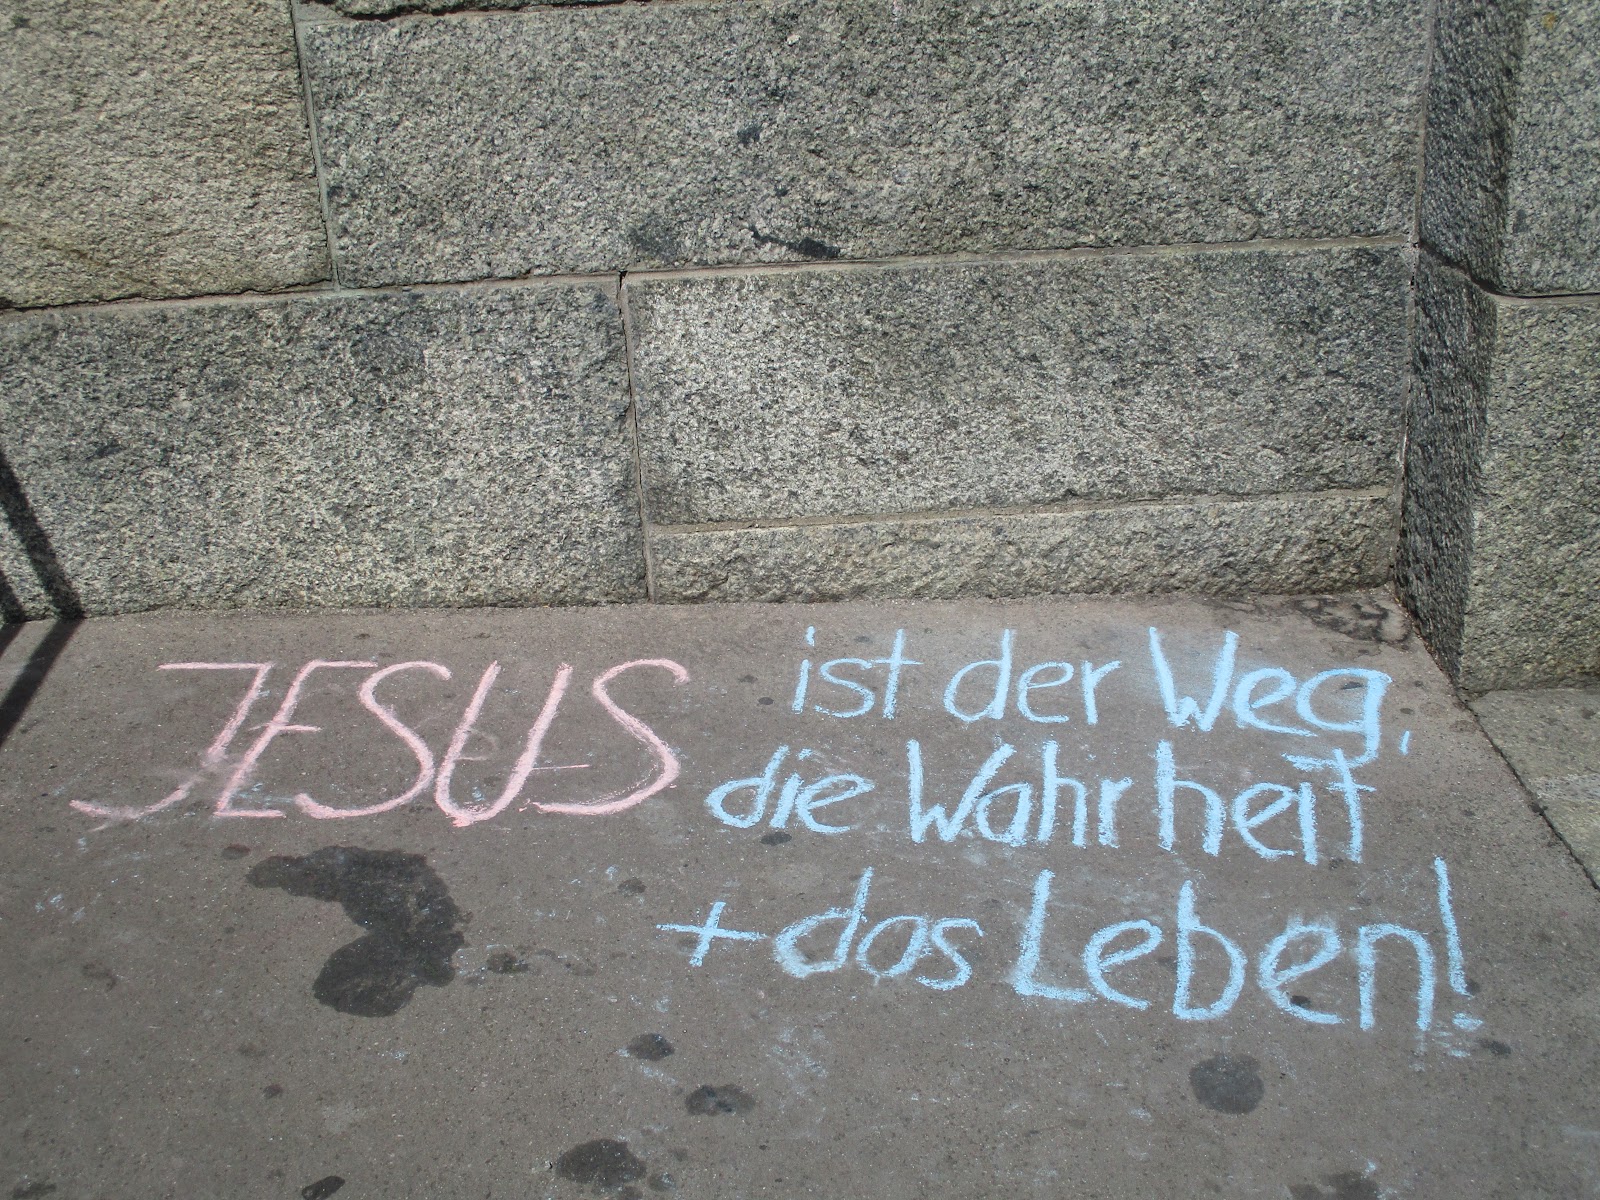 JESUS ist der Weg,
die Wahrheit
+ das Leben!